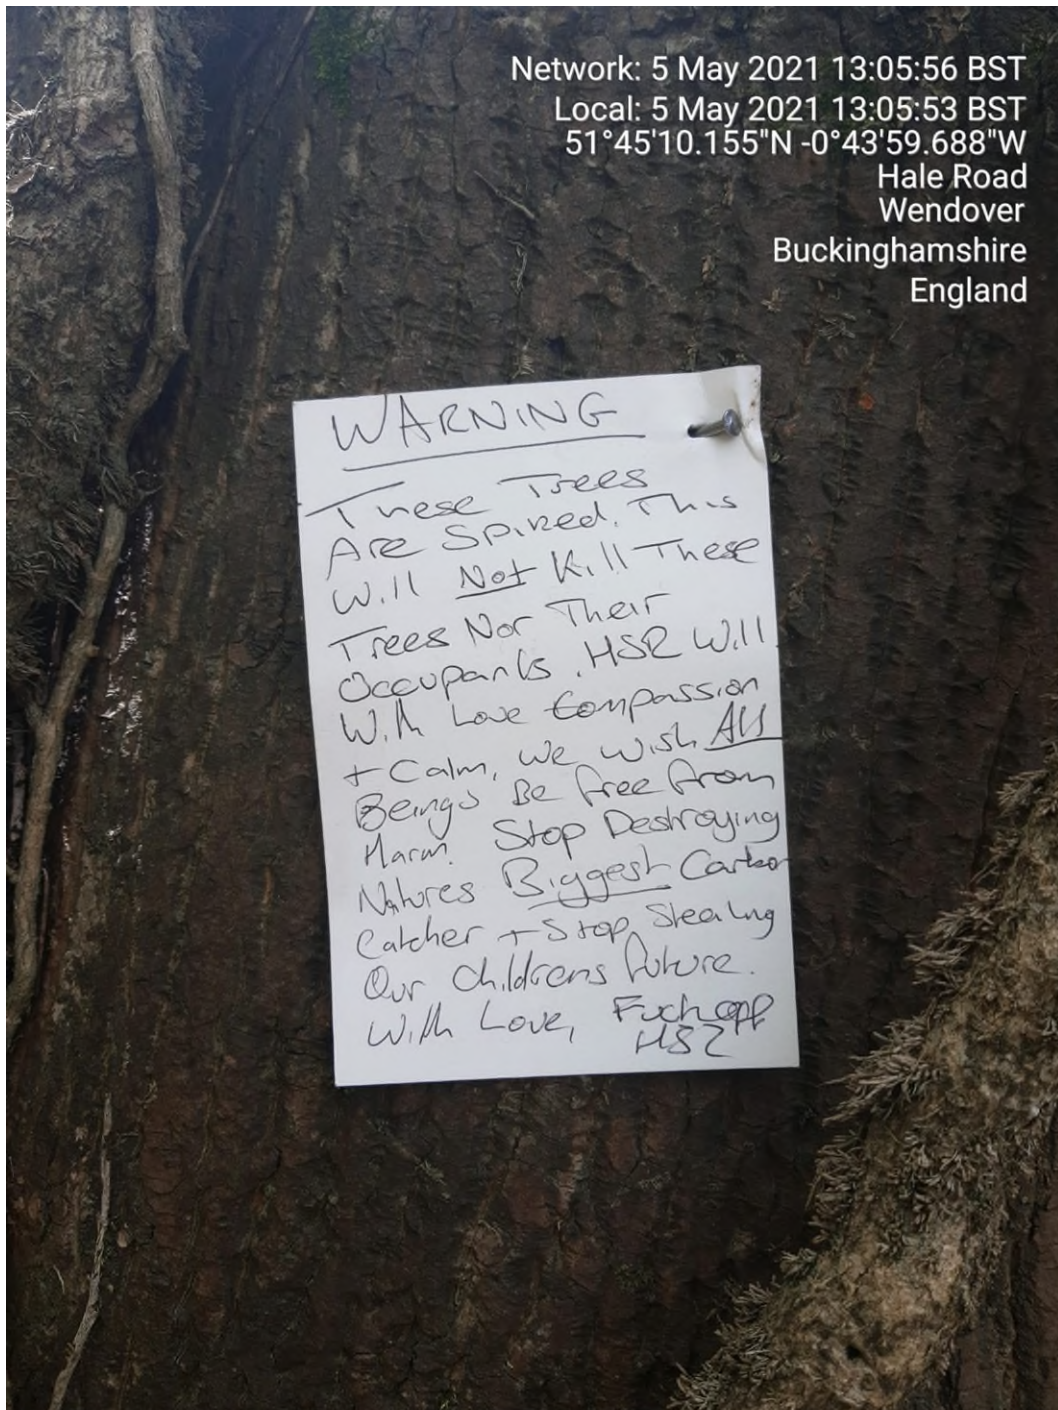 Network: 5 May 2021 13:05:56 BST
Local: 5 May 2021 13:05:53 BST
51°45'10.155"N -0°43'59.688"W
Hale Road
Wendover
Buckinghamshire
England
WARNING
These Trees
Are Spiked. This
Will Not Kill These
Trees Nor Their
Occupants. HS2 Will
With Love Compassion
+ Calm, We Wish All
Beings Be free from
Harm. Stop Destroying
Natures Biggest Carbon
Catcher + Stop Stealing
Our Childrens future.
With Love, Fuck off
HS2